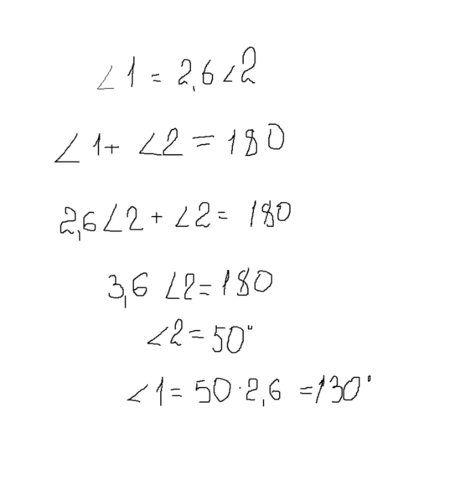 ∠1 = 2,6∠2
∠1+ ∠2 = 180
2,6∠2 + ∠2 = 180
3,6 ∠2 = 180
∠2 = 50°
∠1 = 50·2,6 = 130°